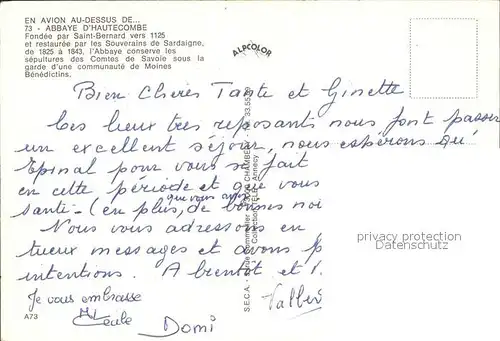 EN AVION AU-DESSUS DE...
73 - ABBAYE D'HAUTECOMBE
Fondée par Saint-Bernard vers 1125
et restaurée par les Souverains de Sardaigne,
de 1825 à 1843, l'Abbaye conserve les
sépultures des Comtes de Savoie sous la
garde d'une communauté de Moines
Bénédictins.
ALPCOLOR
Bien Chères Tante et Ginette
Ces lieux très reposants nous font passer
un excellent séjour, nous espérons qu'
Epinal pour vous se fait
en cette période et que vous
que vous avez
santé - (en plus, de bonnes
Nous vous adressons
tueux messages et avons
intentions. A bientôt et
Je vous embrasse
Cécile
Domi
A73
privacy protection
Datenschutz